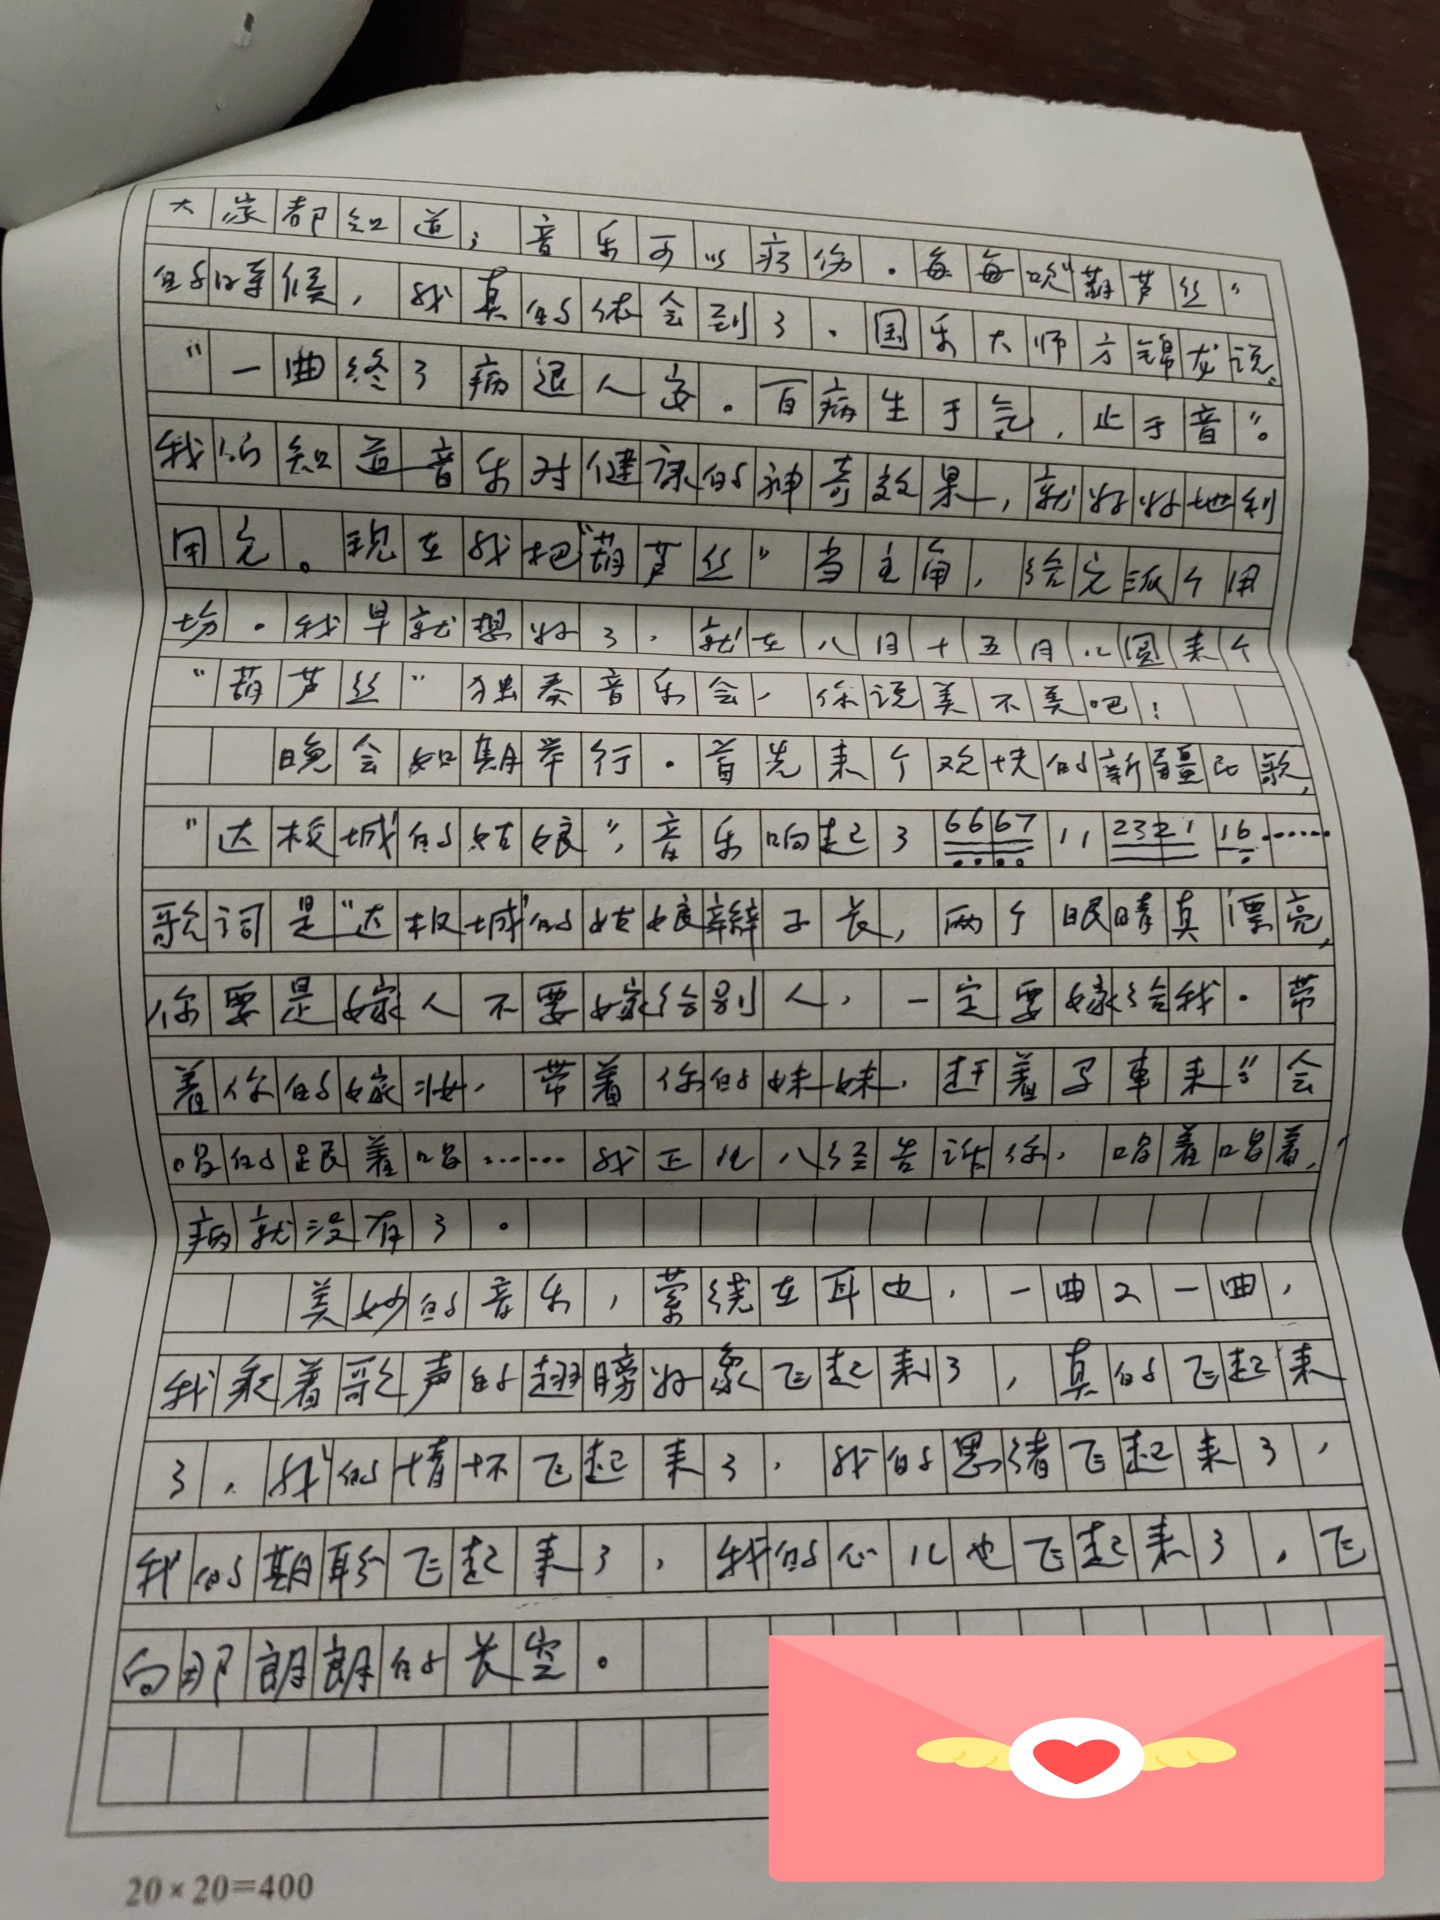 大家都知道;音乐可以疗伤.每每吹"葫芦丝"
的时候,我真的体会到了.国乐大师方锦龙说:
"一曲终了病退人安.百病生于气,止于音"。
我们知道音乐对健康的神奇效果,就好好地利
用它。现在我把"葫芦丝"当主角,给它派个用
场.我早就想好了,就在八月十五月儿圆来个
"葫芦丝"独奏音乐会,你说美不美吧!
晚会如期举行.首先来个欢快的新疆民歌,
"达板城的姑娘",音乐响起了6667 11 2321 16……
歌词是"达板城的姑娘辫子长,两个眼睛真漂亮,
你要是嫁人不要嫁给别人,一定要嫁给我.带
着你的嫁妆,带着你的妹妹,赶着马车来";会
唱的跟着唱……我正儿八经告诉你,唱着唱着,
病就没有了。
美妙的音乐,萦绕在耳边,一曲又一曲,
我乘着歌声的翅膀好象飞起来了,真的飞起来
了,我的情怀飞起来了,我的思绪飞起来了,
我的期盼飞起来了,我的心儿也飞起来了,飞
向那朗朗的长空。
20×20=400